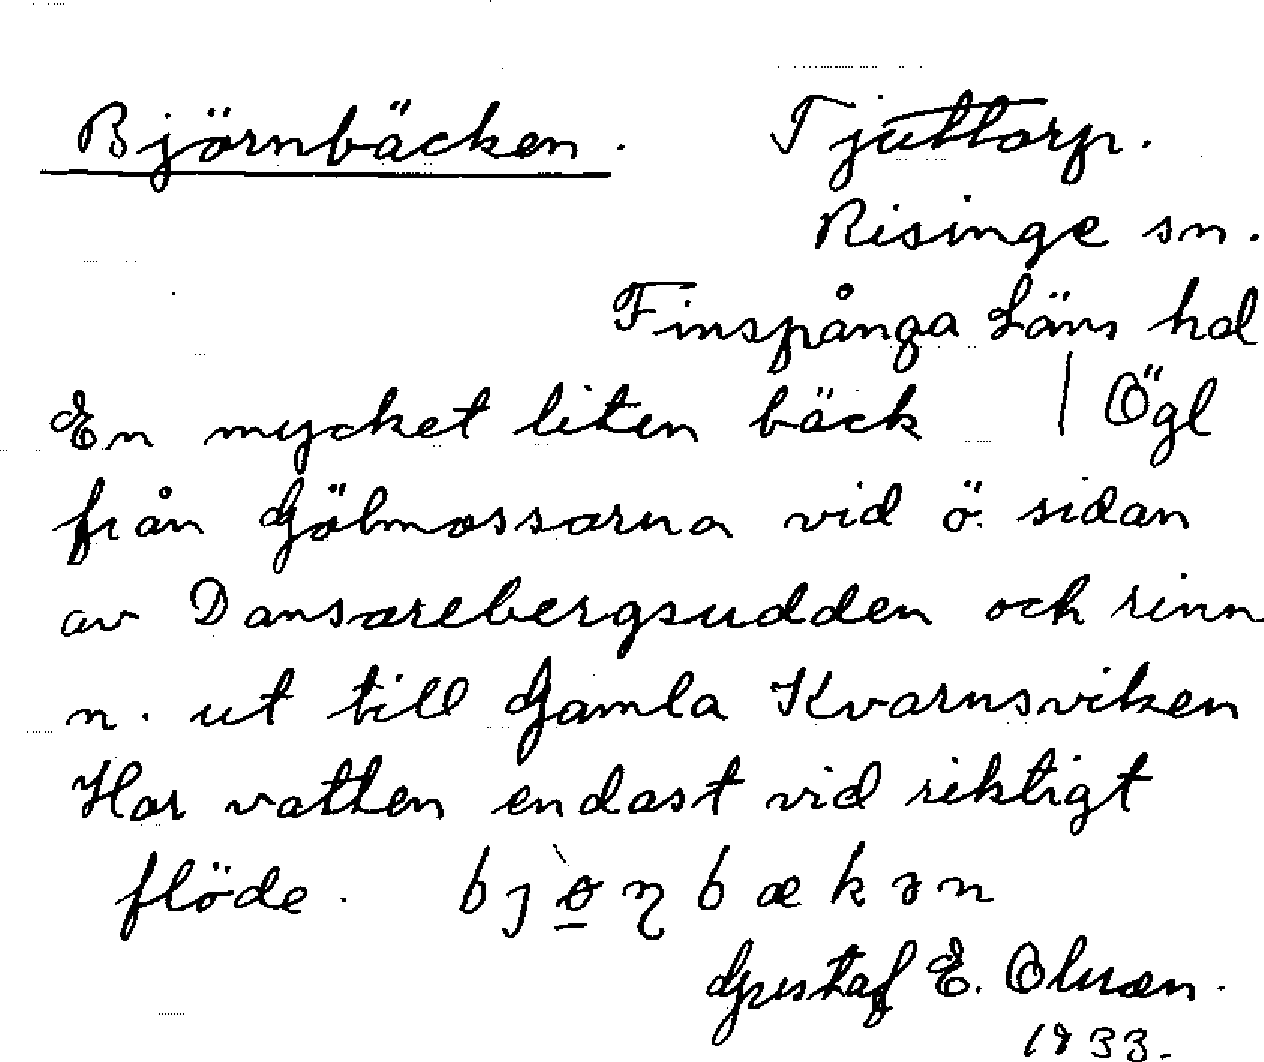 Björnbäcken. Tjuttorp.
Risinge sn.
Finspånga Läns hd
En mycket liten bäck | Ögl
från Gölmossarna vid ö. sidan
av Dansarebergsudden och rinn
n. ut till Gamla Kvarnsviken
Har vatten endast vid riktigt
flöde.
Gustaf E. Olsson.
1933.